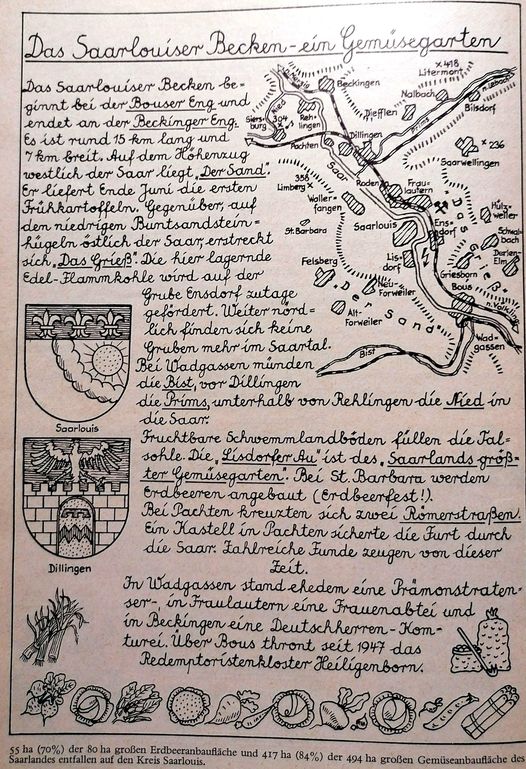 Das Saarlouiser Becken - ein Gemüsegarten
Das Saarlouiser Becken be=
ginnt bei der Bouser Eng und
endet an der Beckinger Eng.
Es ist rund 15 km lang und
7 km breit. Auf dem Höhenzug
westlich der Saar liegt "Der Sand".
Er liefert Ende Juni die ersten
Frühkartoffeln. Gegenüber, auf
den niedrigen Buntsandstein=
hügeln östlich der Saar, erstreckt
sich "Das Grieß". Die hier lagernde
Edel-Flammkohle wird auf der
Grube Ensdorf zutage
gefördert. Weiter nord=
lich finden sich keine
Gruben mehr im Saartal.
Bei Wadgassen münden
die Bist, vor Dillingen
die Prims, unterhalb von Rehlingen die Nied in
die Saar.
Fruchtbare Schwemmlandböden füllen die Tal=
sohle. Die "Lisdorfer Au" ist des "Saarlands größ=
ter Gemüsegarten". Bei St. Barbara werden
Erdbeeren angebaut (Erdbeerfest!).
Bei Pachten kreuzten sich zwei Römerstraßen.
Ein Kastell in Pachten sicherte die Furt durch
die Saar. Zahlreiche Funde zeugen von dieser
Zeit.
In Wadgassen stand ehedem eine Prämonstraten=
ser-, in Fraulautern eine Frauenabtei und
in Beckingen eine Deutschherren-Kom=
turei. Über Bous thront seit 1947 das
Redemptoristenkloster Heiligenborn.
Saarlouis
Dillingen
Beckingen
× 418
Litermont
Nalbach
n. Lebach
Bilsdorf
Diefflen
Prims
Nied
Siers-
burg
304
Reh-
lingen
Pachten
Dillingen
× 236
Saarwellingen
Saar
358
Limberg ×
Roden
Frau-
lautern
Waller-
fangen
Hülz-
weiler
St. Barbara
Saarlouis
Ens-
dorf
Das Grieß
Schwal-
bach
Lis-
dorf
Derlen-
Elm
Felsberg
Griesborn
Neu-
Forweiler
Bous
n. Völklingen
Alt-
Forweiler
Der Sand
Wad-
gassen
Bist
55 ha (70%) der 80 ha großen Erdbeeranbaufläche und 417 ha (84%) der 494 ha großen Gemüseanbaufläche des
Saarlandes entfallen auf den Kreis Saarlouis.